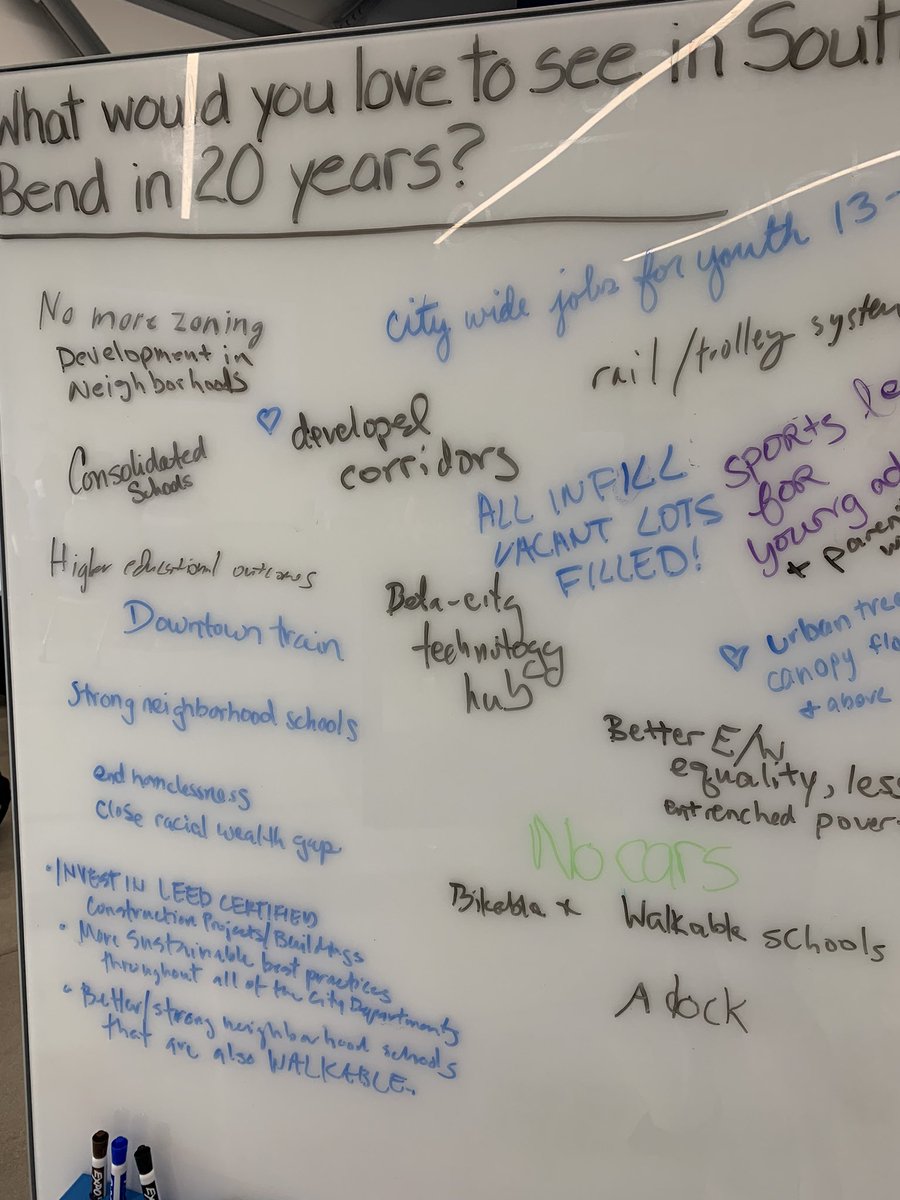 What would you love to see in Sout
Bend in 20 years?
city wide jobs for youth 13-
rail/trolley system
No more zoning
Development in
Neighborhoods
developed
corridors
Consolidated
Schools
ALL INFILL
VACANT LOTS
FILLED!
SPORTS le
for
young ad
+ paren
Higher educational outcomes
Downtown train
Beta-city
technology
hub
urban tree
canopy flo
+ above
Strong neighborhood schools
Better E/W
equality, less
entrenched pover
end homelessness
close racial wealth gap
No cars
Bikeable + Walkable schools
A dock
• INVEST IN LEED CERTIFIED
Construction Projects/Buildings
• More sustainable best practices
throughout all of the City Departments
• Better/strong neighborhood schools
that are also WALKABLE.
EXPO